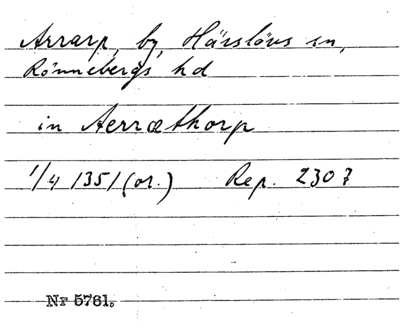 Arrarp, by, Härslövs sn,
Rönnebergs hd
in Aerræthorp
1/4 1351 (or.) Rep. 2307
Nr 5781.